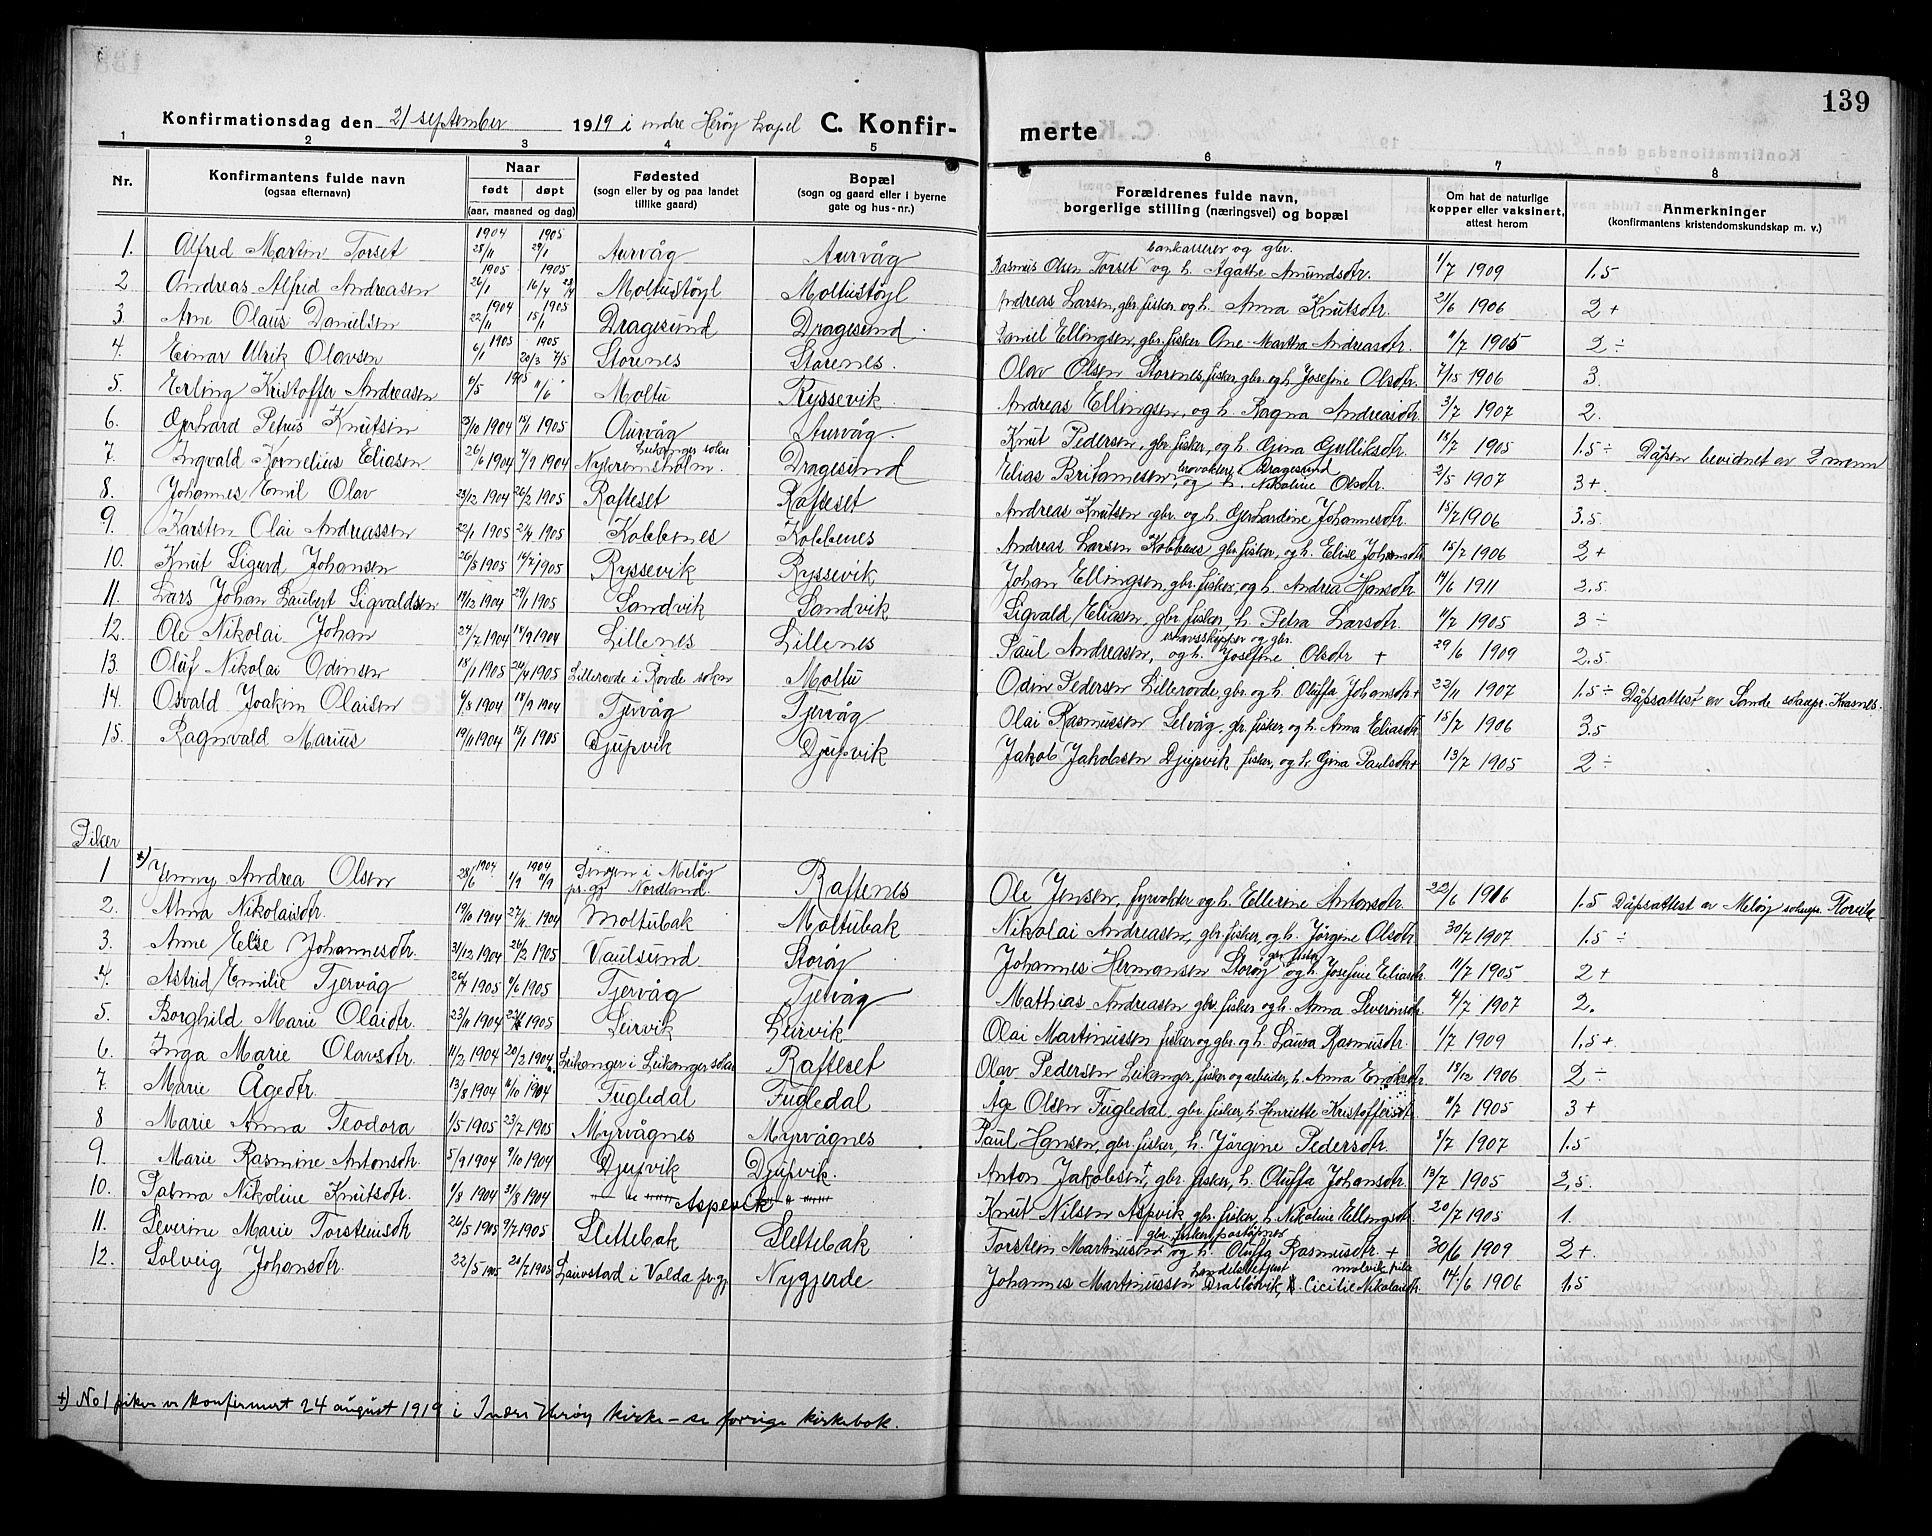 139
Konfirmationsdag den 21 september 1919 i indre Herøy kapel C. Konfir- merte
1 2 3 4 5 6 7 8
Nr. Konfirmantens fulde navn (ogsaa efternavn) Naar født døpt (aar, maaned og dag) Fødested (sogn eller by og paa landet tillike gaard) Bopæl (sogn og gaard eller i byerne gate og hus-nr.) Forældrenes fulde navn, borgerlige stilling (næringsvei) og bopæl Om hat de naturlige kopper eller vaksinert, attest herom Anmerkninger (konfirmantens kristendomskundskap m. v.)
1. Alfred Martin Torset 1904 28/11 1905 29/1 Aurvåg Aurvåg Rasmus Olsen Torset og h. Agathe Amundsdtr. 1/7 1909 1.5
2 Andreas Alfred Andreasen 1905 26/1 1905 16/4 23/4 Moltustøyl Moltustøyl Andreas Larsen, gbr. fisker og h. Anna Knutsdtr. 2/6 1906 2+
3 Arne Olaus Danielsen 1904 22/11 1905 15/1 Dragesund Dragesund. Daniel Ellingsen, gbr. fisker Ane Martha Andreasdtr. 11/7 1905 2÷
4. Einar Ulrik Olavsen 1905 6/1 1905 20/3 7/5 Storenes Storenes. Olav Olsen Storenes, fisker, gbr. og h. Josefine Olsdtr. 7/15 1906 3.
5. Erling Kristoffer Andreasen 1905 11/6 Moltu Ryssevik Andreas Ellingsen, og h. Ragna Andreasdtr. 3/7 1907 2.
6. Gerhard Petrus Knutsen 23/10 1904 15/1 1905 Aurvåg Aurvåg. Knut Pedersen, gbr. fisker, og h. Gina Gulliksdtr. 18/7 1905 1.5÷ Dåpen bevidnet av 2 menn
7. Ingvald Kornelius Eliasen 26/6 1904 4/9 1904 Nykremsholm. Leikanger sokn Dragesund Elias Britanusen, Dragesund og h. Nikoline Olsdtr. 2/5 1907 3+.
8. Johannes Emil Olav 23/12 1904 26/2 1905 Rafteset Rafteset Andreas Knutsen gbr. og h. Gerhardine Johannesdtr. 15/7 1906 3.5.
9. Karsten Olai Andreassen 22/1 1905 21/4 1905 Kobbenes Kobbenes Andreas Larsen Kobbenes gbr. fisker, og h. Elise Johansdtr. 15/7 1906 2+
10. Knut Sigurd Johansen 26/5 1905 14/7 1905 Ryssevik Ryssevik Johan Ellingsen, gbr. fisker, og h. Andrea Hansdtr. 14/6 1911 2.5.
11. Lars Johan Laubert Sigvaldsen 14/12 1904 29/1 1905 Sandvik Sandvik Sigvald Eliasen, gbr. fisker, h. Petra Larsdtr. 11/7 1905 3÷
12. Ole Nikolai Johan 24/7 1904 18/9 1904 Lillenes Lillenes Paul Andreasen, ishavsskipper og gbr. og h. Josefine Olsdtr + 29/6 1909 2.5
13. Olaf Nikolai Odinsen 18/1 1905 24/4 1905 Lillerovde i Rovde sokn Moltu Odin Pedersen Lillerovde, gbr. og h. Oluffa Johansdtr+ 23/11 1907 1.5÷ Dåpsattest av Sønde soknepr. Krasnes.
14. Osvald Joakim Olaisen 9/8 1904 18/9 1904 Tjervåg Tjervåg Olai Rasmussen Selvåg, gbr. fisker og h. Anna Eliasdtr. 15/7 1906 3.5
15. Ragnvald Marius 19/11 1904 15/1 1905 Djupvik Djupvik Jakob Jakobsen Djupvik fisker, og h. Gina Paulsdtr 13/7 1905 2÷
Piker
1 +) Jenny Andrea Olsen 1904 28/6 1904 1/9 11/9 i Meløy pr.gj. Nordland. Raftenes Ole Jensen, fyrvokter og h. Ellerene Antonsdtr. 22/6 1916 1.5 Dåpsattest av Meløy soknepr.
2. Alma Nikolaisdtr. 19/10 1904 27/11 1904 Moltubak Moltubak Nikolai Andreasen, gbr. fisker, og h. Jørgine Olsdtr. 30/7 1907 1.5÷
3. Anne Else Johannesdtr. 31/12 1904 26/2 1905 Vaulsund Storøy Johannes Hermansen Storøy gbr. fisker og h. Josefine Eliasdtr. 11/7 1905 2+
4. Astrid Emilie Tjervåg 26/4 1905 11/6 1905 Tjervåg Tjervåg Mathias Andreasen gbr. fisker og h. Anna Severinsdtr. 4/7 1907 2.
5. Borghild Marie Olaidtr. 23/11 1904 1905 Leirvik Leirvik Olai Martinussen fisker og gbr. og h. Laura Rasmusdtr. 1/7 1909 1.5+.
6. Inga Marie Olavsdtr. 11/2 1904 20/2 1904 Leikanger i Leikanger sokn Rafteset Olav Pedersen Leikanger, fisker og arbeider, h. Anna Eriksdtr. 15/12 1906 2÷
7. Marie Ågedtr. 13/8 1904 11/10 1904 Fugledal Fugledal Åge Olsen Fugledal, gbr. fisker, h. Henriette Kristoffersdtr. 11/7 1905 3+
8 Marie Anna Teodora 1/5 1905 23/7 1905 Myrvågnes Myrvågnes Paul Hansen, gbr. fisker, h. Jørgine Pedersdtr. 8/7 1907 1.5
9. Marie Rasmine Antonsdtr. 5/9 1904 9/10 1904 Djupvik Djupvik. Anton Jakobsen+, gbr. fisker, h. Oluffa Johansdtr. 13/7 1905 2,5.
10. Palma Nikoline Knutsdtr. 1/8 1904 31/8 1904 Aspevik Knut Nilsen Aspvik gbr. fisker, h. Nikoline Ellingsdtr. 20/7 1905 1.
11. Severine Marie Torsteinsdtr 26/5 1905 9/7 1905 Slettebak Slettebak Torstein Martinussen gbr. fisker, poståpner og h. Oluffa Rasmusdtr. + 30/6 1909 2+.
12. Solveig Johansdtr. 22/5 1905 20/7 1905 Lauvstad i Volda pr.gj. Nygjerde Johannes Martinussen Drabløsvik, h. Cicilie Nikolaisdtr. 14/6 1906 1,5
+) No 1 piker er konfirmert 24 august 1919 i Indre Herøy kirke – se forrige kirkebok.